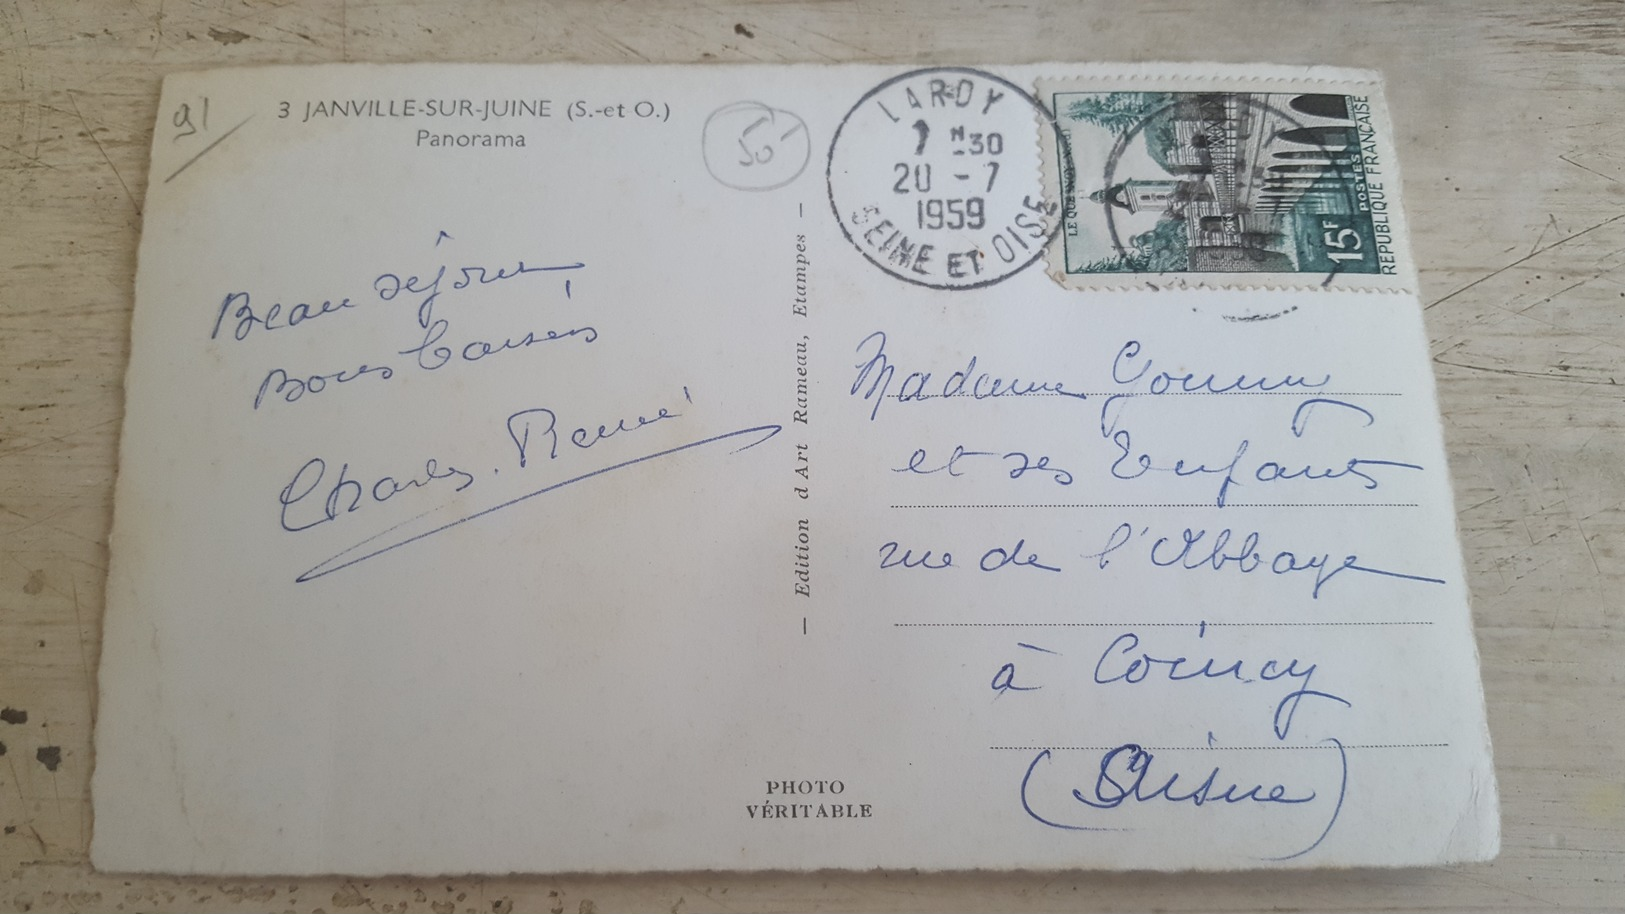 91
3 JANVILLE-SUR-JUINE (S.-et O.)
Panorama
50
LARDY
30
20 - 7
1959
SEINE ET OISE
LE QUESNOY
15F
POSTES
REPUBLIQUE FRANÇAISE
Beau séjour
Bons baisers
Charles. René
— Edition d Art Rameau, Etampes —
PHOTO
VÉRITABLE
Madame
et ses Enfants
rue de l'Abbaye
à Coincy
(Aisne)